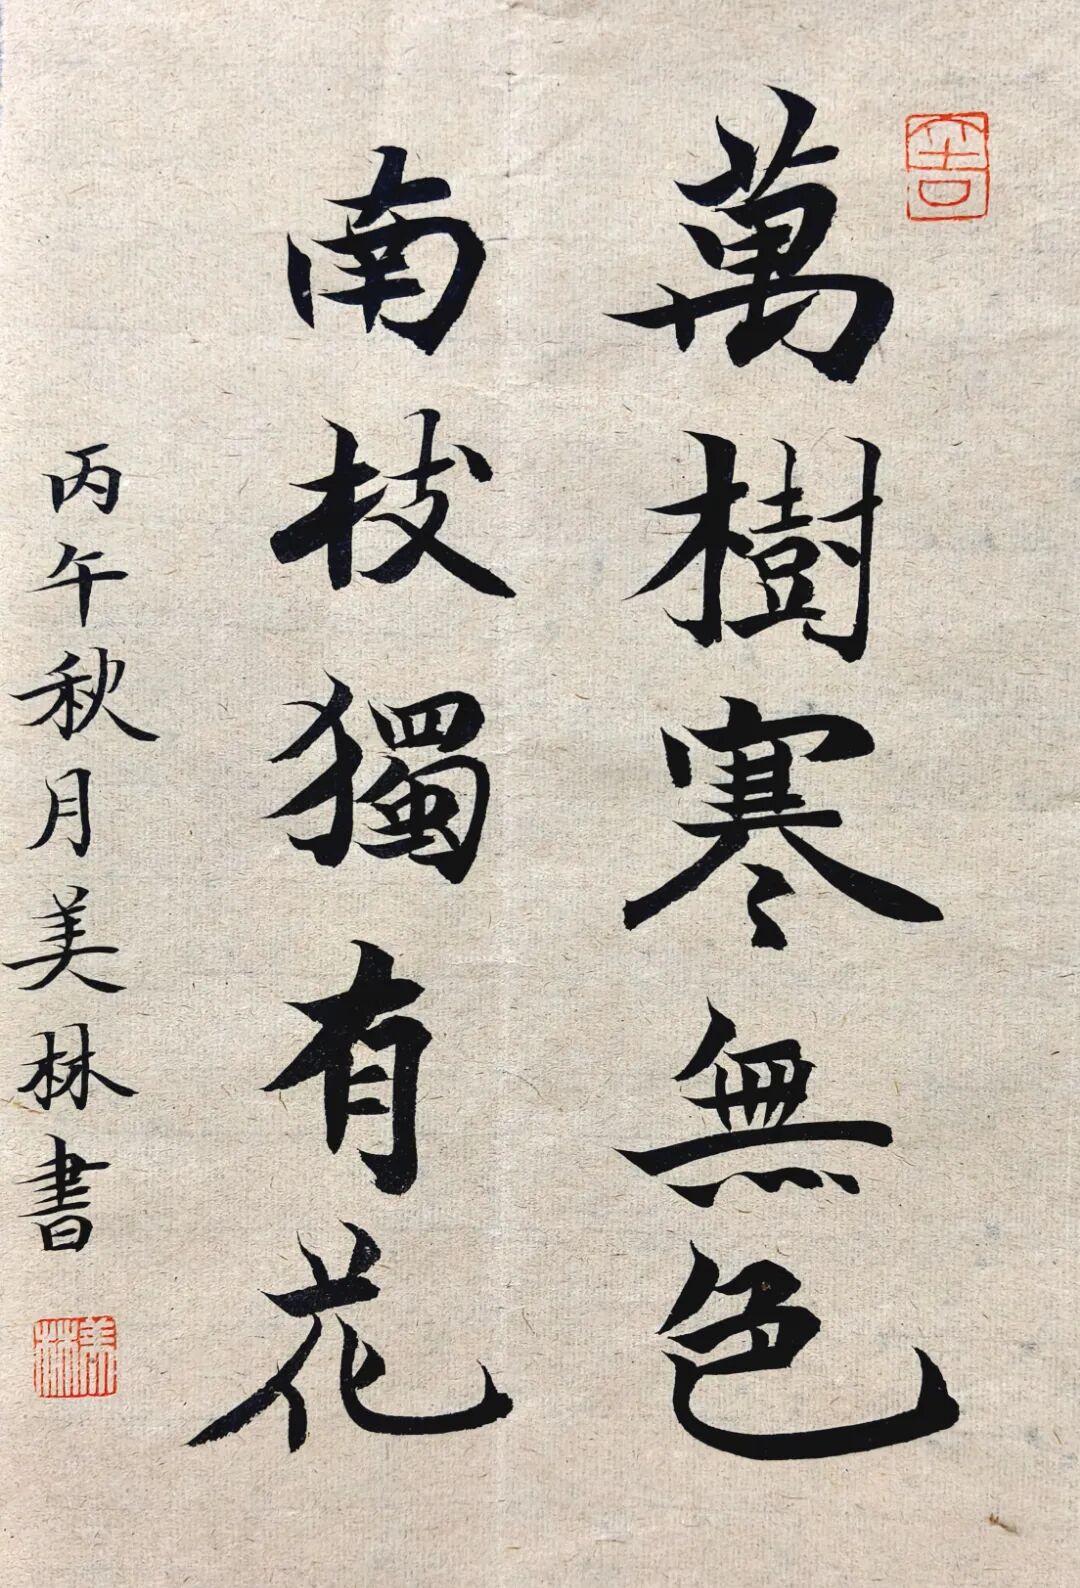 萬樹寒無色
南枝獨有花
丙午秋月美林書
美林